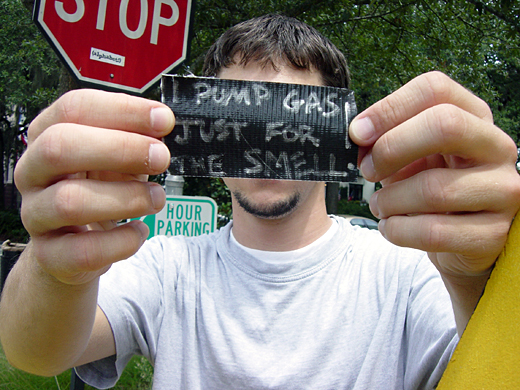 STOP
(alphabeat)
I PUMP GAS
JUST FOR
THE SMELL!
HOUR
PARKING